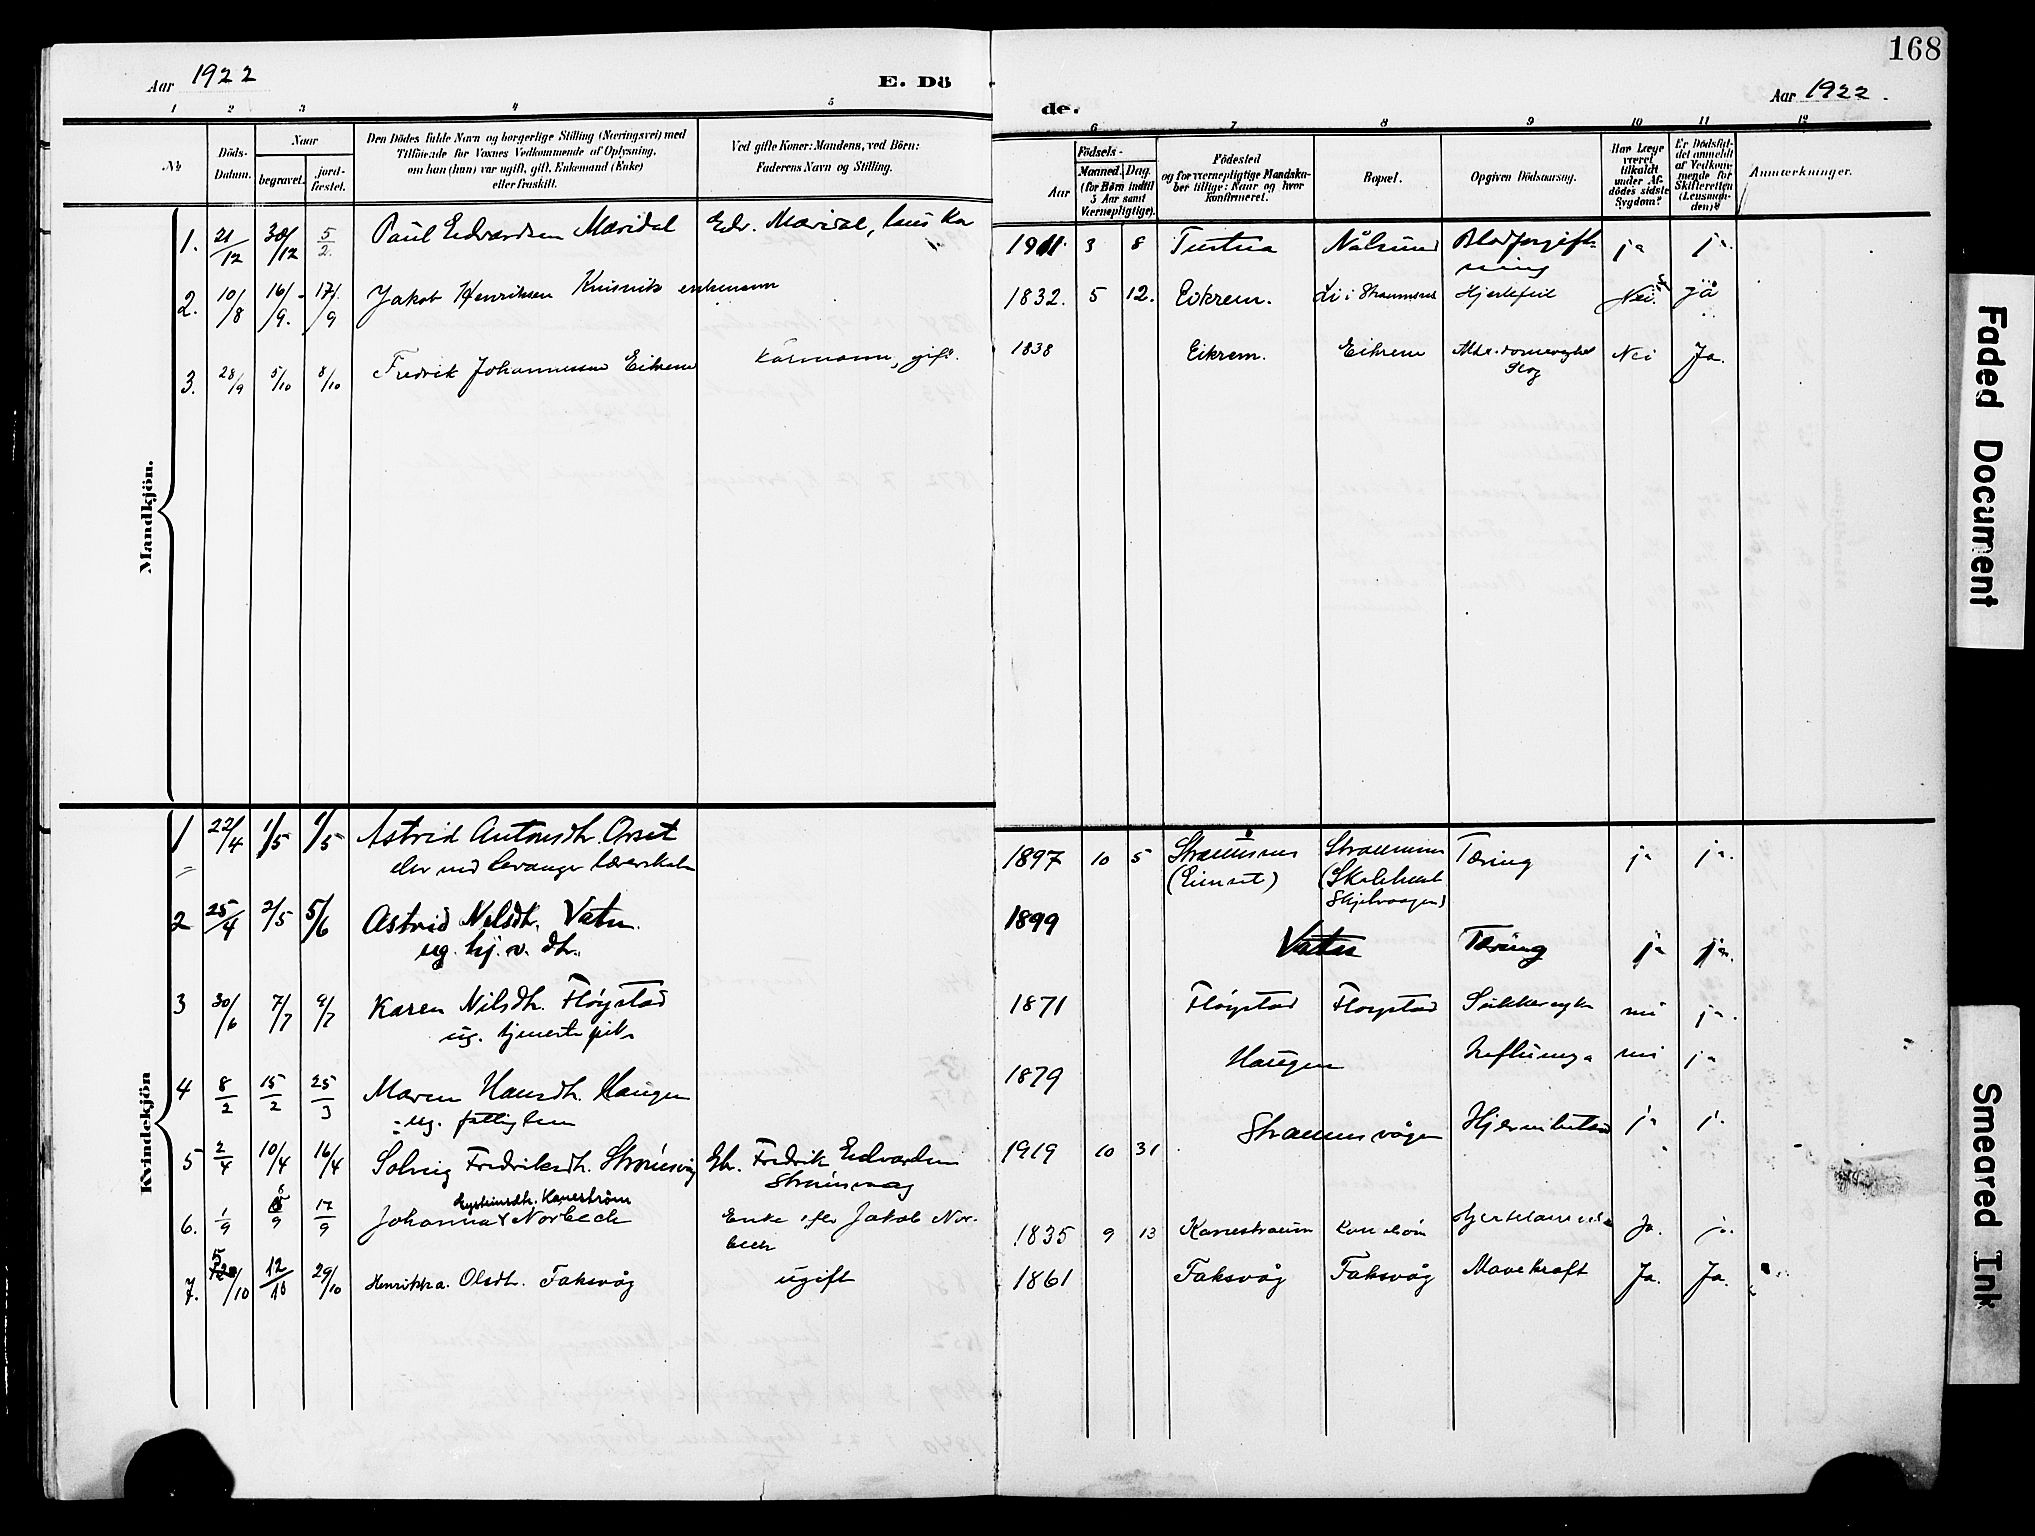 168
Aar 1922
E. Dö
de.
Aar 1922.
1 2 3 4 5
6 7 8 9 10 11 12
No.
Döds-
Datum.
Naar
begravet.
jord-
fæstet.
Den Dödes fulde Navn og borgerlige Stilling (Næringsvei) med
Tilföiende for Voxnes Vedkommende af Oplysning,
om han (hun) var ugift, gift, Enkemand (Enke)
eller fraskilt.
Ved gifte Koner: Mandens, ved Börn:
Faderens Navn og Stilling.
Födsels-
Aar
Maaned. Dag.
(for Börn indtil
5 Aar samt
Værnepligtige).
Födested
og for værnepligtige Mandskaber tillige: Naar og hvor
konfirmeret.
Bopæl.
Opgiven Dödsaarsag.
Har Læge
været
tilkaldt
under Afdödes sidste
Sygdom?
Er Dödsfaldet anmeldt
af Vedkommende for
Skifteretten
(Lensmanden)?
Anmærkninger.
Mandkjön.
1. 21/12 30/12 5/2. Paul Edvardsen Mæridal Edv. Mæridal, 1911. 3 8 Tustna Nålsund Blodforgift-
ning ja ja.
2. 10/8 16/9. 17/9 Jakob Henriksen enkemann 1832. 5 12. Eikrem. Li i Straumsnes Hjertefeil Nei. ja
3. 28/9 5/10 8/10 Fredrik Johannessen Eikrem Kårmann, gift. 1838 Eikrem. Eikrem Nei Ja.
Kvindekjön
1 22/4 1/5 1/5 Astrid Antonsdtr. Orset
elev ved Levanger lærerskole 1897 10 5 Straumsnes
(Eimset) Straumsnes
Tæring ja ja.
2 25/4 2/5 5/6 Astrid Nilsdtr. Vatn.
ug. hj. v. dtr. 1899 Vatn Tæring ja ja.
3 30/6 7/7 9/7 Karen Nilsdtr. Fløystad
ug. tjenestepike 1871 Fløystad Fløystad Sukkersyke nei ja.
4 8/2 15/2 25/3 Maren Hansdtr. Haugen
ug. fattiglem 1879 Haugen Influensa nei ja
5 2/4 10/4 16/4 Solveig Fredriksdtr. Strømsvåg Gbr. Fredrik Edvardsen
Strømsvaag 1919 10 31 Straumsvågen ja j.
6. 1/9 6/9 17/9 Johanna Eysteinsdtr. Kanestrøm Norbech Enke efter Jakob Nor-
bech 1835 9 13 Kanestraum Ja. j.
7. 5/10 12/10 29/10 Henrikka Olsdtr. Faksvåg ugift 1861 Faksvåg Faksvåg Mavekræft Ja. Ja.
Faded Document
Smeared Ink